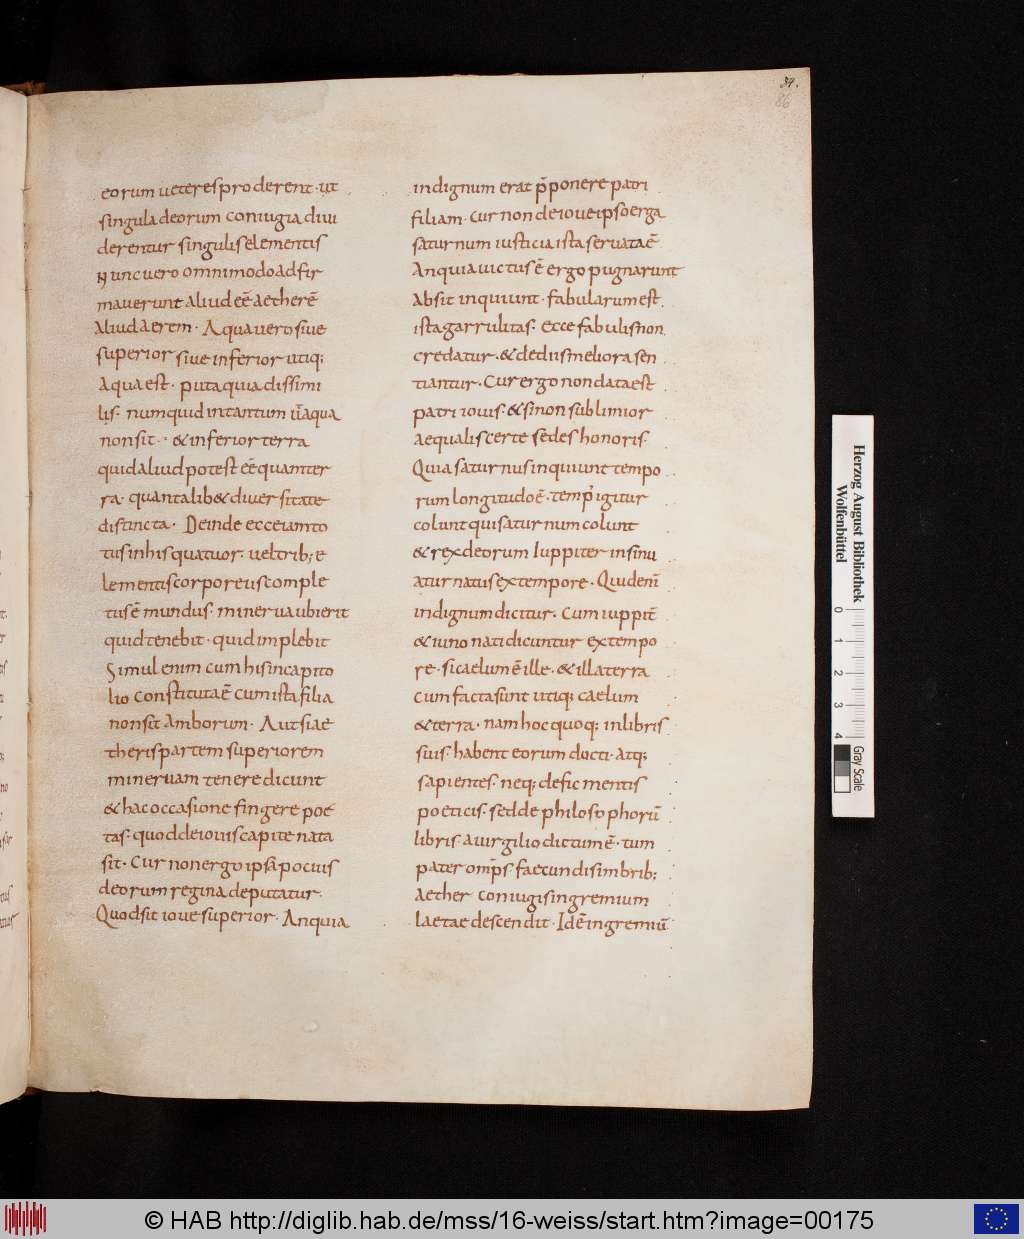 84.
86
eorum ueteres proderent · ut
singula deorum coniugia diui
derentur singulis elementis
Nunc uero omni modo adfir
mauerunt aliud eē aetherē
aliud aerem · Aqua uero siue
superior siue inferior utiq;
aqua est · puta quia dissimi
lis · numquid in tantum ut aqua
non sit · & inferior terra
quid aliud potest eē quam ter
ra · quantalib& diuersitate
distincta · Deinde ecce iam to
tus in his quatuor · uel trib; e
lementis corporeus comple
tus ē mundus · minerua ubi erit
quid tenebit · quid implebit
Simul enim cum his in capito
lio constituta ē cum ista filia
non sit amborum · Aut si ae
theris partem superiorem
mineruam tenere dicunt
& hac occasione fingere poe
tas · quod de iouis capite nata
sit · Cur non ergo ipsa pocius
deorum regina deputatur ·
Quod sit ioue superior · An quia
indignum erat p̄ponere patri
filiam · Cur non de ioue ipso erga
saturnum iusticia ista seruata ē
An quia uictus ē ergo pugnarunt
Absit inquiunt · fabularum est
ista garrulitas · ecce fabulis non
credatur · & de diis meliora sen
tiantur · Cur ergo non data est
patri iouis · & si non sublimior
aequalis certe sedes honoris ·
Quia saturnus inquiunt tempo
rum longitudo ē · temp' igitur
colunt qui saturnum colunt
& rex deorum Iuppiter insinu
atur natus ex tempore · Quid enī
indignum dicitur · Cum iuppit̄
& iuno nati dicuntur ex tempo
re · si caelum ē ille · & illa terra
cum facta sunt utiq; caelum
& terra · nam hoc quoq; in libris
suis · habent eorum docti · atq;
sapientes · neq; de figmentis
poeticis · sed de philosophorū
libris · a uirgilio dictum ē · tum
pater omp̄s faecundis imbrib;
aether coniugis in gremium
laetae descendit · Id ē in gremiū
Herzog August Bibliothek
Wolfenbüttel
0 1 2 3 4
Gray Scale
© HAB http://diglib.hab.de/mss/16-weiss/start.htm?image=00175